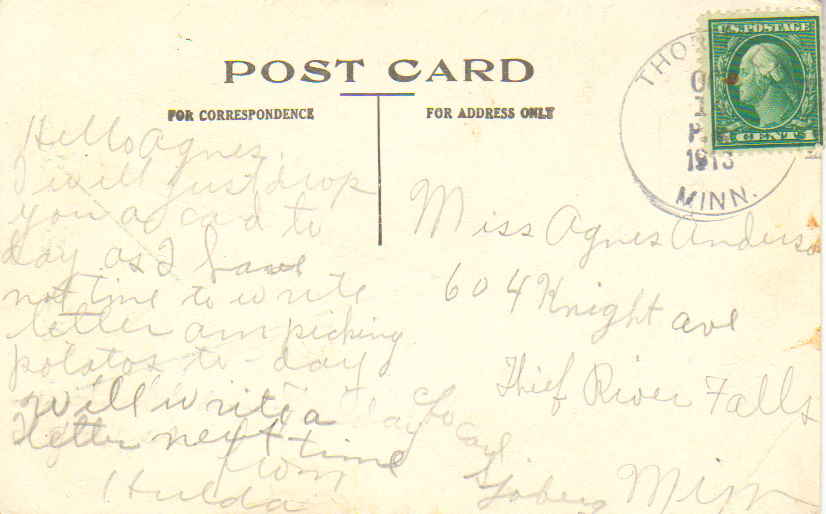 POST CARD
FOR CORRESPONDENCE
FOR ADDRESS ONLY
U.S. POSTAGE
CENTS
1913
MINN.
Hello Agnes
I will just drop
you a cad to
day as I have
not time to write
letter am picking
potatos to-day
will write a
letter next time
from
Hulda
Miss Agnes Anderso
604 Knight ave
Thief River Falls
Minn
c/o
Carl